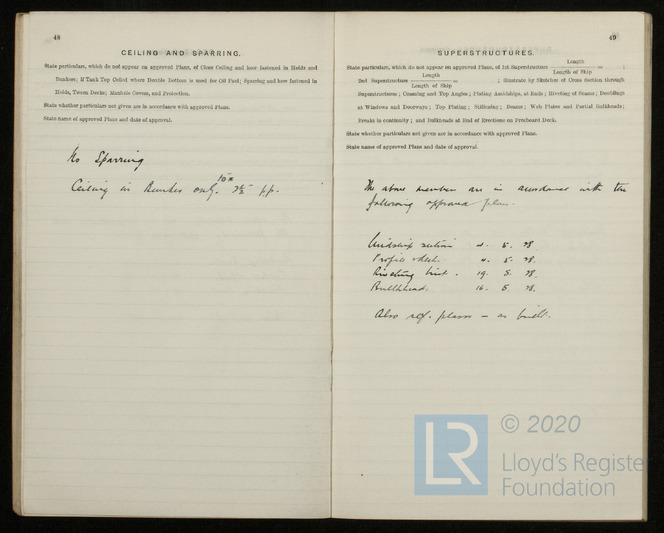 48
CEILING AND SPARRING.
State particulars, which do not appear on approved Plans, of Close Ceiling and how fastened in Holds and
Bunkers; if Tank Top Ceiled where Double Bottom is used for Oil Fuel; Sparring and how fastened in
Holds, Tween Decks; Manhole Covers, and Protection.
State whether particulars not given are in accordance with approved Plans.
State name of approved Plans and date of approval.
No Sparring
Ceiling in Bunker only. 10" x 2½" p.p.
49
SUPERSTRUCTURES.
State particulars, which do not appear on approved Plans, of 1st Superstructure Length / Length of Ship = ;
2nd Superstructure Length / Length of Ship = ; illustrate by Sketches of Cross Section through
Superstructures; Coaming and Top Angles; Plating Amidships, at Ends; Riveting of Seams; Doublings
at Windows and Doorways; Top Plating; Stiffening; Beams; Web Plates and Partial Bulkheads;
Breaks in continuity; and Bulkheads at End of Erections on Freeboard Deck.
State whether particulars not given are in accordance with approved Plans.
State name of approved Plans and date of approval.
The above member are in accordance with the
following approved plan.
Midship section 4. 5. 28.
Profile & deck. 4. 5. 28.
Riveting list. 19. 5. 28.
Bulkhead. 16. 5. 28.
Also ref. plans – as built.
LR
© 2020
Lloyd's Register
Foundation